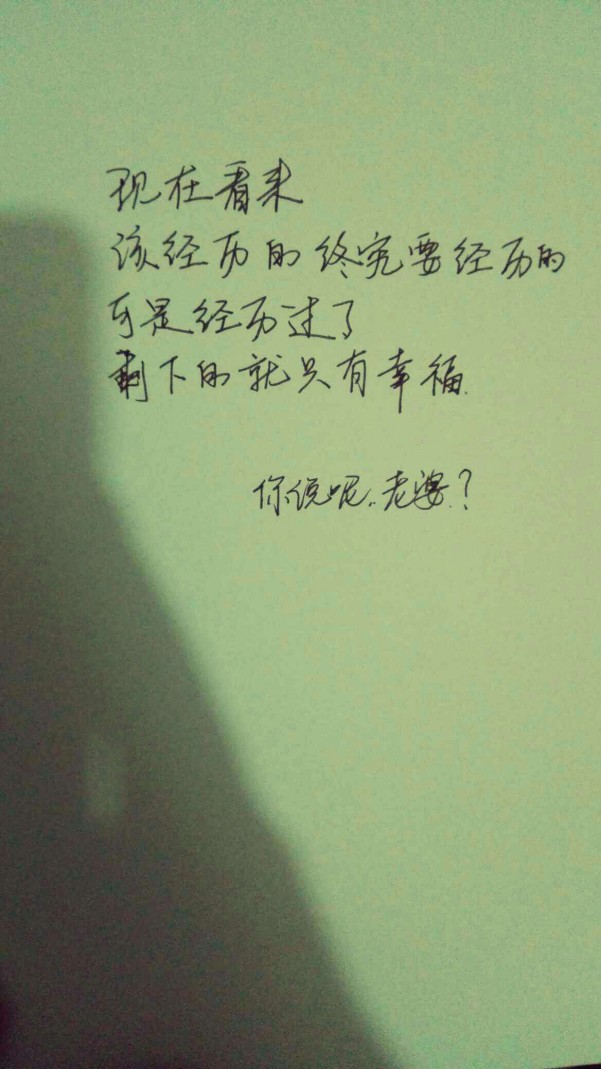 现在看来
该经历的终究要经历的
可是经历过了
剩下的就只有幸福.
你说呢..老婆.?